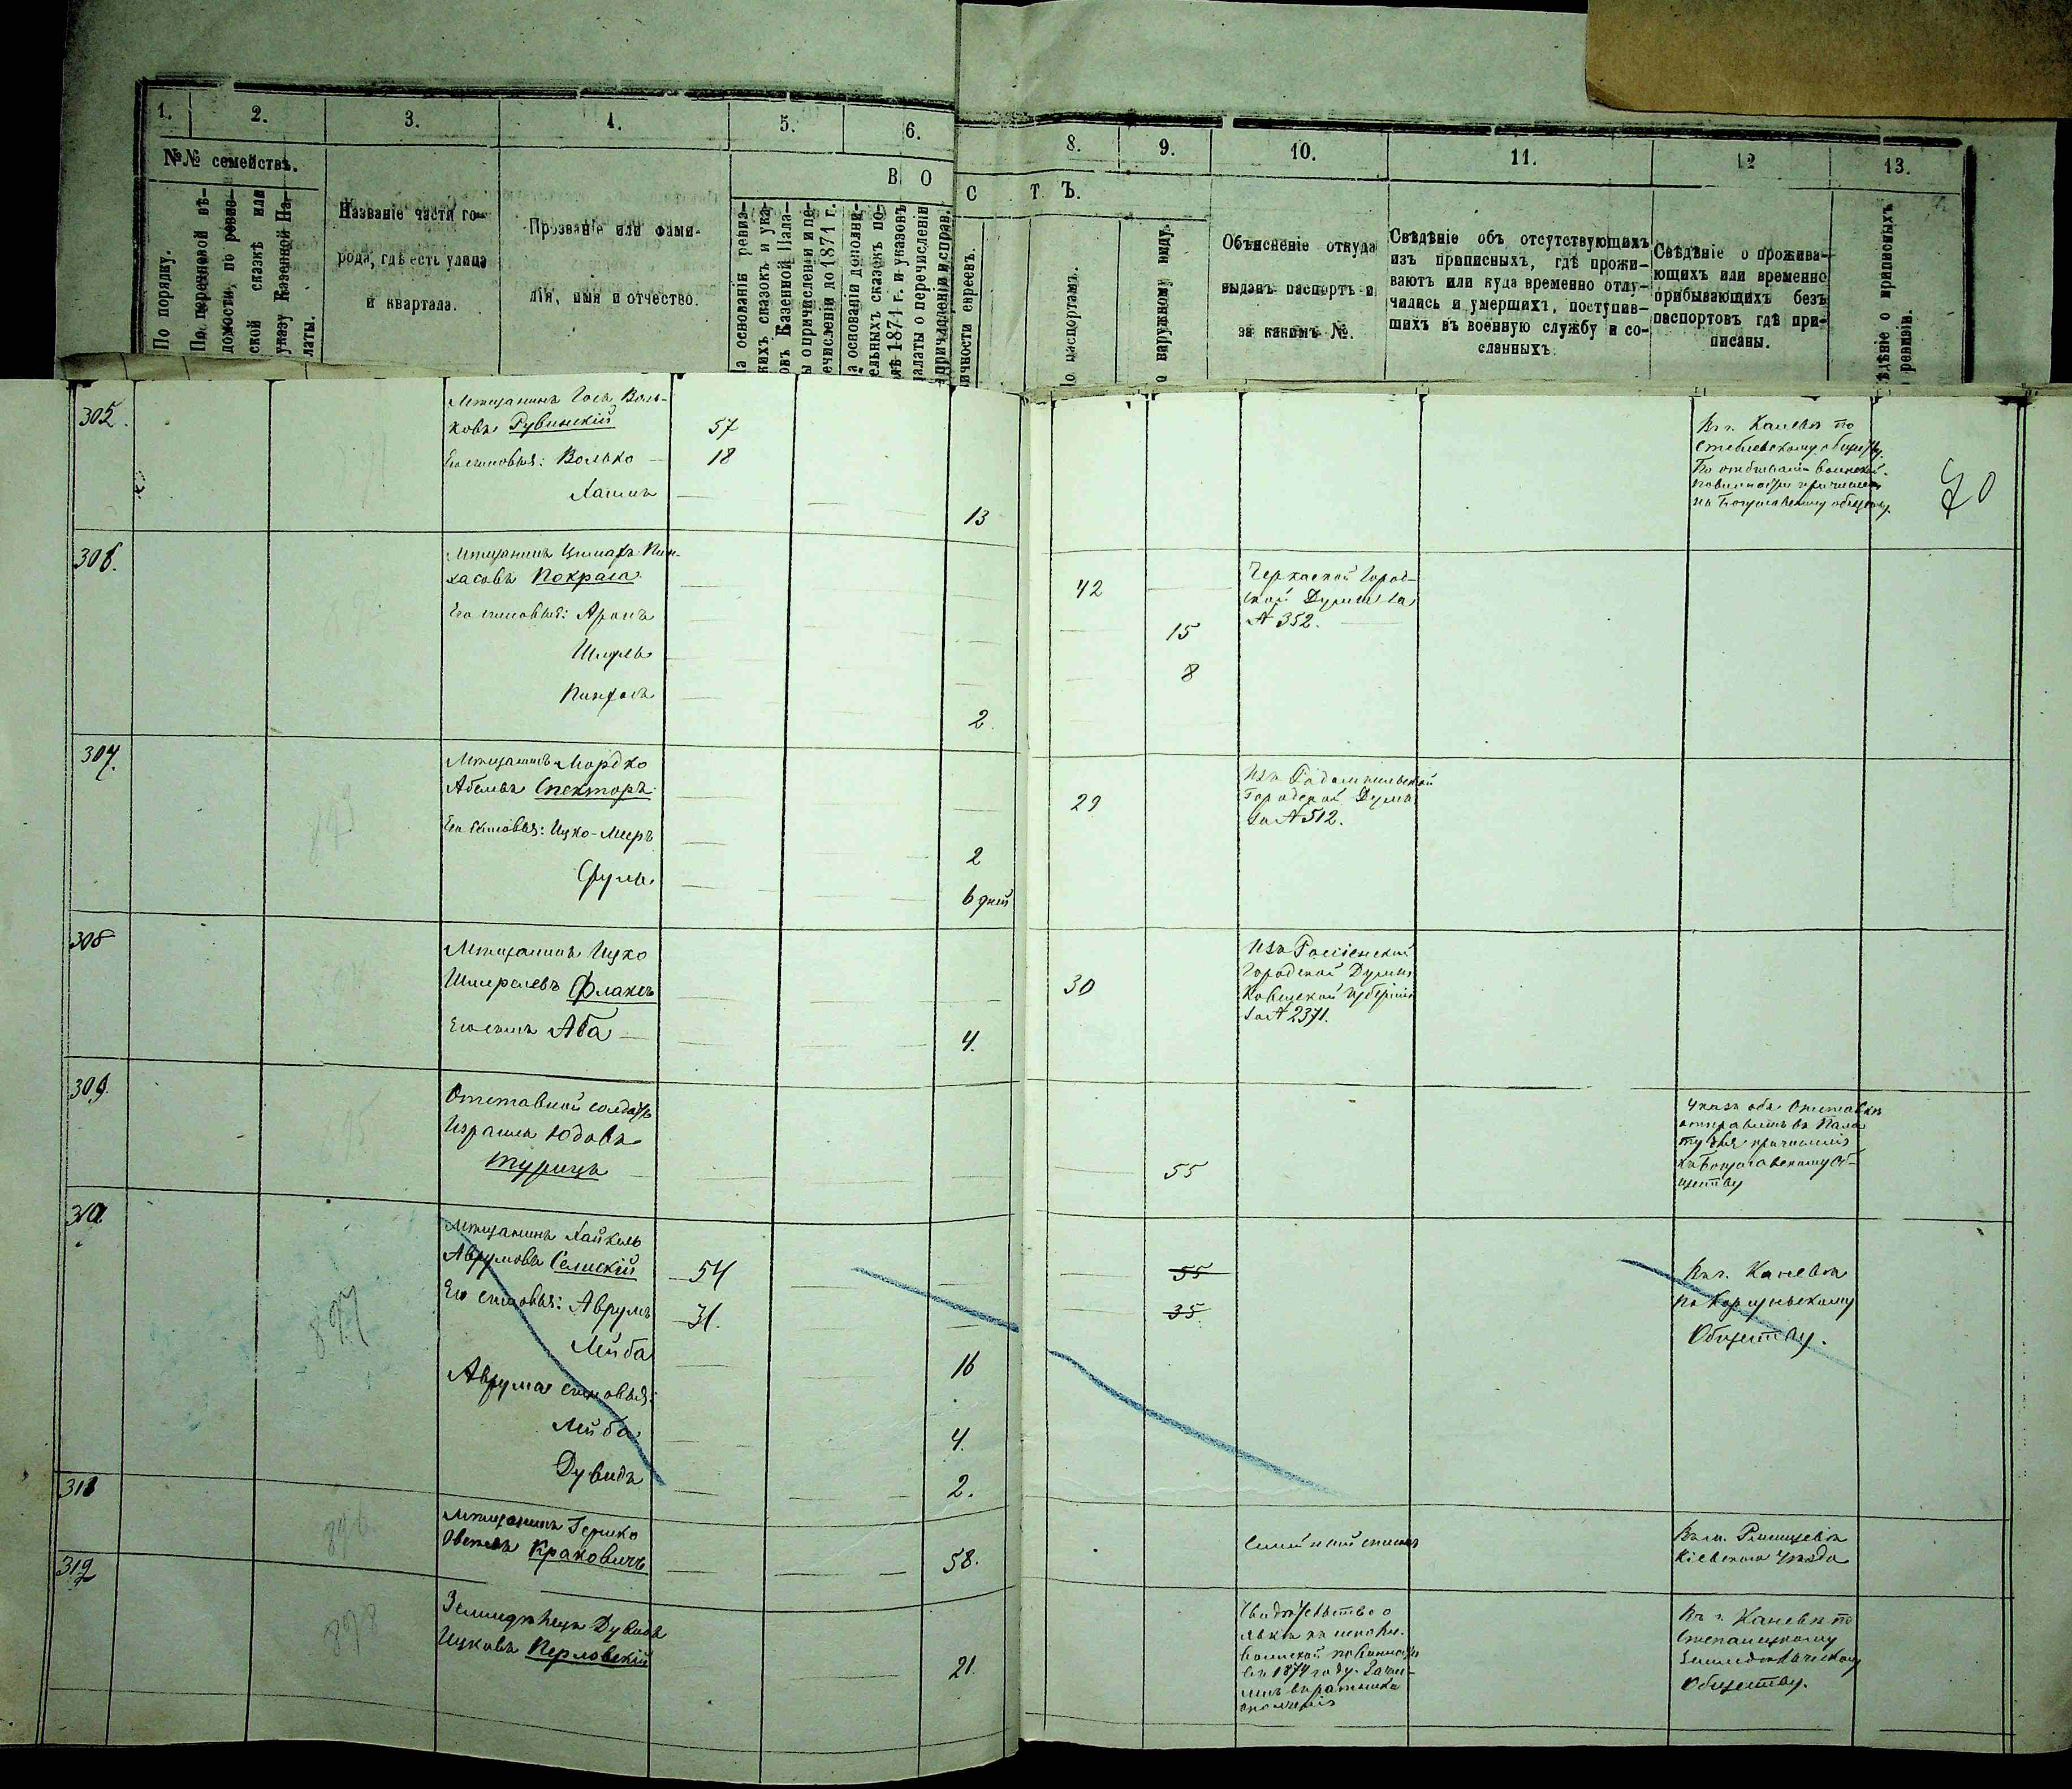 1. 2. 3. 4. 5. 6.
8. 9. 10. 11. 12 13.
№№ семействъ.
По порядку.
По перечневой вѣ-
домости, по ревиз-
ской сказкѣ или
указу Казенной Па-
латы.
Названіе части го-
рода, гдѣ есть улица
и квартала.
Прозваніе или фами-
лія, имя и отчество.
В О
С Т Ъ.
а основаніи ревиз-
кихъ сказокъ и ука-
овъ Казенной Пала-
ы о причисленіи и пе-
ечисленіи до 1871 г.
а основаніи дополни-
ельныхъ сказокъ по-
лѣ 1871 г. и указовъ
алаты о перечисленіи
ичности евреевъ.
о паспортамъ.
о наружному виду.
Объясненіе откуда
выданъ паспортъ и
за какимъ №.
Свѣдѣніе объ отсутствующихъ
изъ приписныхъ, гдѣ прожи-
ваютъ или куда временно отлу-
чились и умершихъ, поступив-
шихъ въ военную службу и со-
сланныхъ.
Свѣдѣніе о прожива-
ющихъ или временно
прибывающихъ безъ
паспортовъ гдѣ при-
писаны.
ѣдѣніе о приписныхъ
ревизіи.
305.
Мѣщанинъ Іось Воль-
ковъ Рубинскій 57
Его сыновья: Волько 18
Хаимъ 13
Въ г. Каневѣ по
Стеблевскому обществу.
По отбыванію воинской
повинности причисленъ
къ Богуславскому обществу
70
306.
Мѣщанинъ Пин-
хасовъ Покраса 42
Его сыновья: Аронъ 15
8
Пинхосъ 2
Черкаской Город-
ской Думы за
№ 352.
307.
Мѣщанинъ Мордко
Абелевъ Спекторъ 29
Его сыновья: Ицко-Меръ 2
Сруль 6 дней
Изъ Радомысльской
Городской Думы
за № 512.
308
Мѣщанинъ Ицко
Шмерелевъ Флаксъ 30
Его сынъ Аба 4.
Изъ Россіенской
Городской Думы
Ковенской губерніи
за № 2371.
309.
Отставной солдатъ
Израиль Юдовъ
Турицъ 55
Указъ объ отставкѣ
отправленъ въ Пала
ту для причисленія
къ Богуславскому Об-
ществу
310
Мѣщанинъ Хайкель
Аврумовъ Селискій 54 55
Его сыновья: Аврумъ 31. 35.
Лейба 16
Аврума сыновья:
Лейба 4.
Дувидъ 2.
Въ г. Каневѣ
по Корсунскому
Обществу.
897
311
Мѣщанинъ Гершко
Овсеевъ Краковичъ 58.
Семейный списокъ
Въ м. Ржищевѣ
Кіевскаго уѣзда
896
312
Земледѣлецъ Дувидъ
Ицковъ Перловскій 21.
Свидѣтельство о
явкѣ къ исполн.
воинской повинности
въ 1874 году. Зачис-
ленъ въ ратники
ополченія
Въ г. Каневѣ по
Степанецкому
Земледѣльческому
Обществу.
898